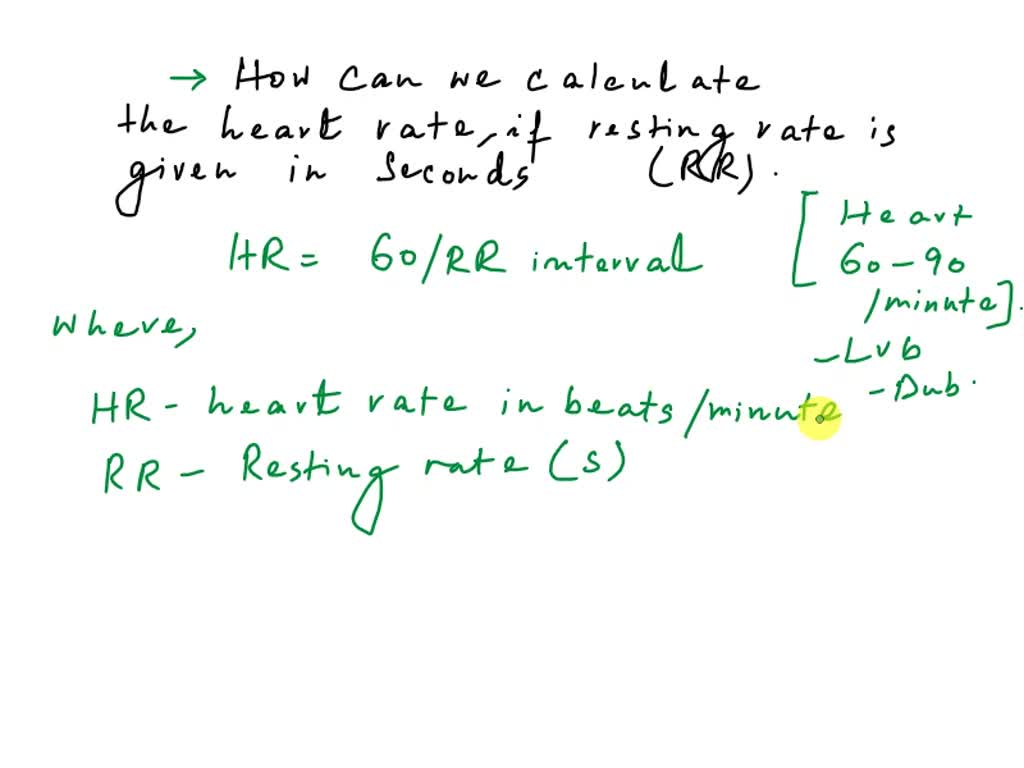 → How can we calculate
the heart rate, if resting rate is
given in seconds (RR).
HR = 60/RR interval
[Heart
60-90
/minute].
where,
- Lub
- Dub.
HR - heart rate in beats/minute
RR - Resting rate (s)